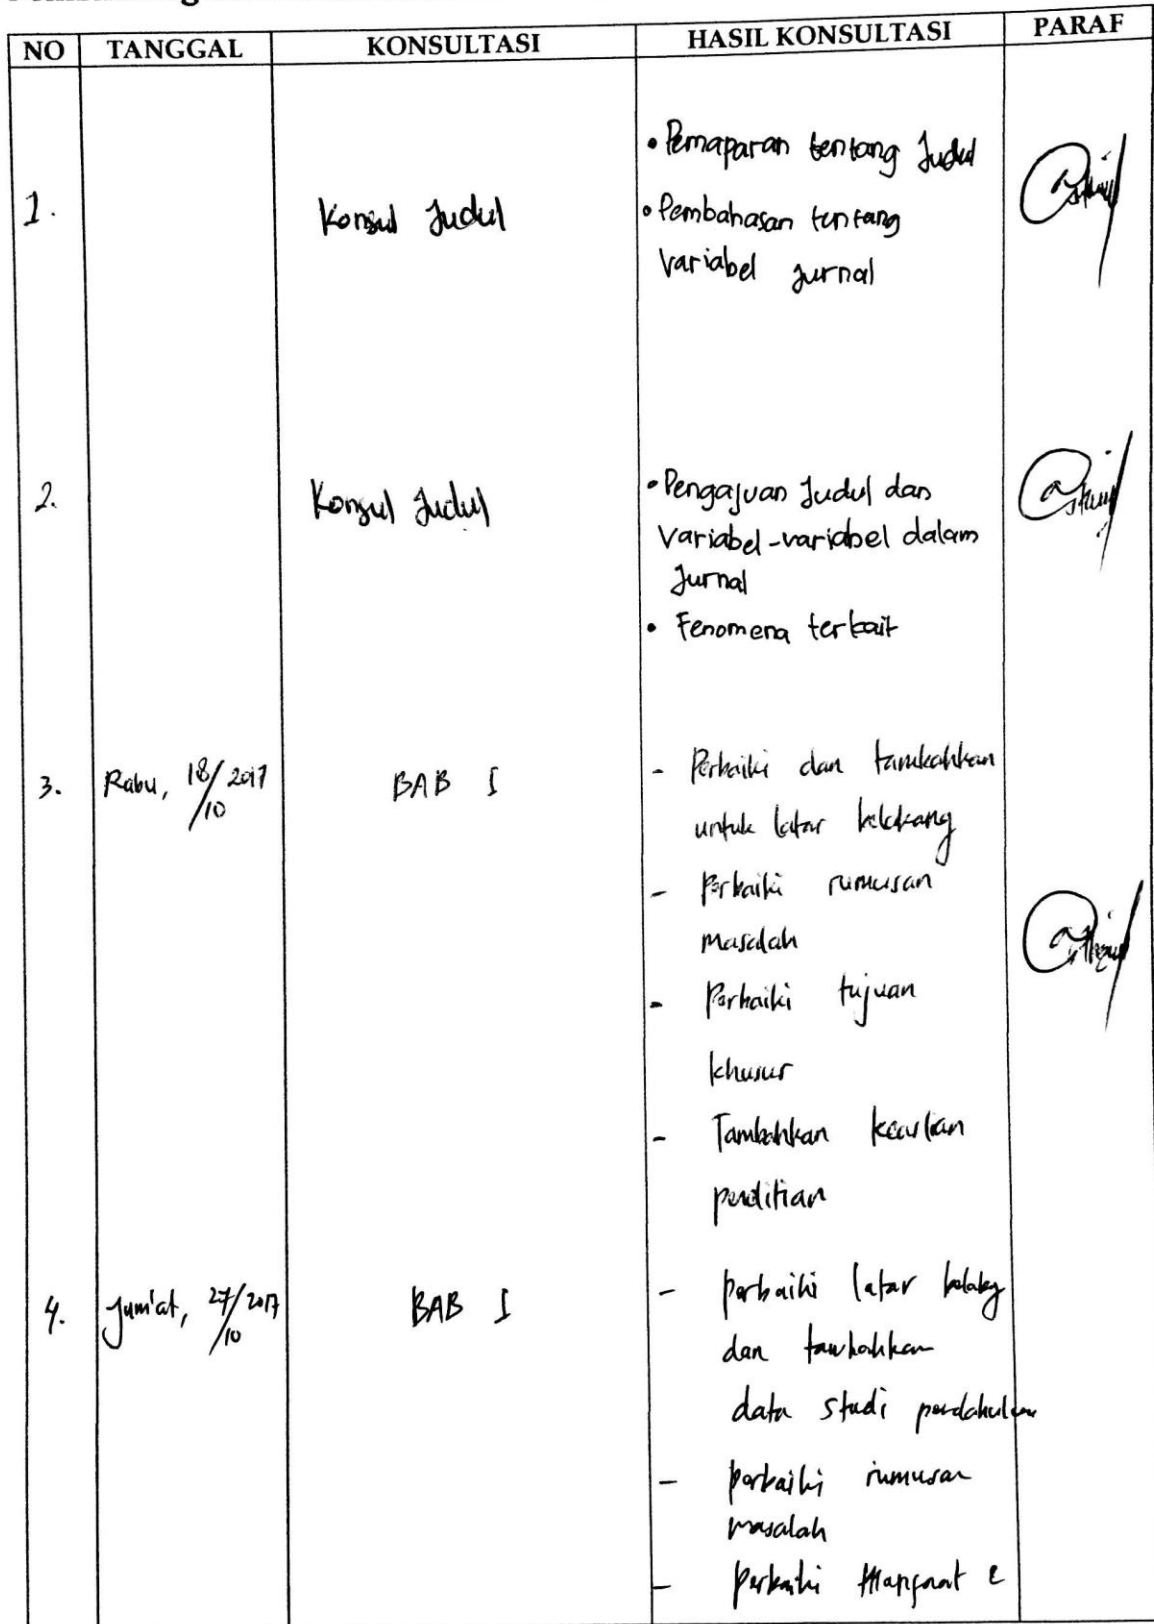 NO TANGGAL KONSULTASI HASIL KONSULTASI PARAF
1. Konsul Judul
• Pemaparan tentang Judul
• Pembahasan tentang
variabel jurnal
2. Konsul Judul
• Pengajuan Judul dan
variabel-variabel dalam
Jurnal
• Fenomena terkait
3. Rabu, 18/10 2017 BAB I
- Perbaiki dan tambahkan
untuk latar belakang
- Perbaiki rumusan
masalah
- Perbaiki tujuan
khusus
- Tambahkan keaslian
penelitian
4. Jum'at, 27/10 2017 BAB I
- perbaiki latar belakg
dan tambahkan
data studi pendahuluan
- perbaiki rumusan
masalah
- Perbaiki Manfaat